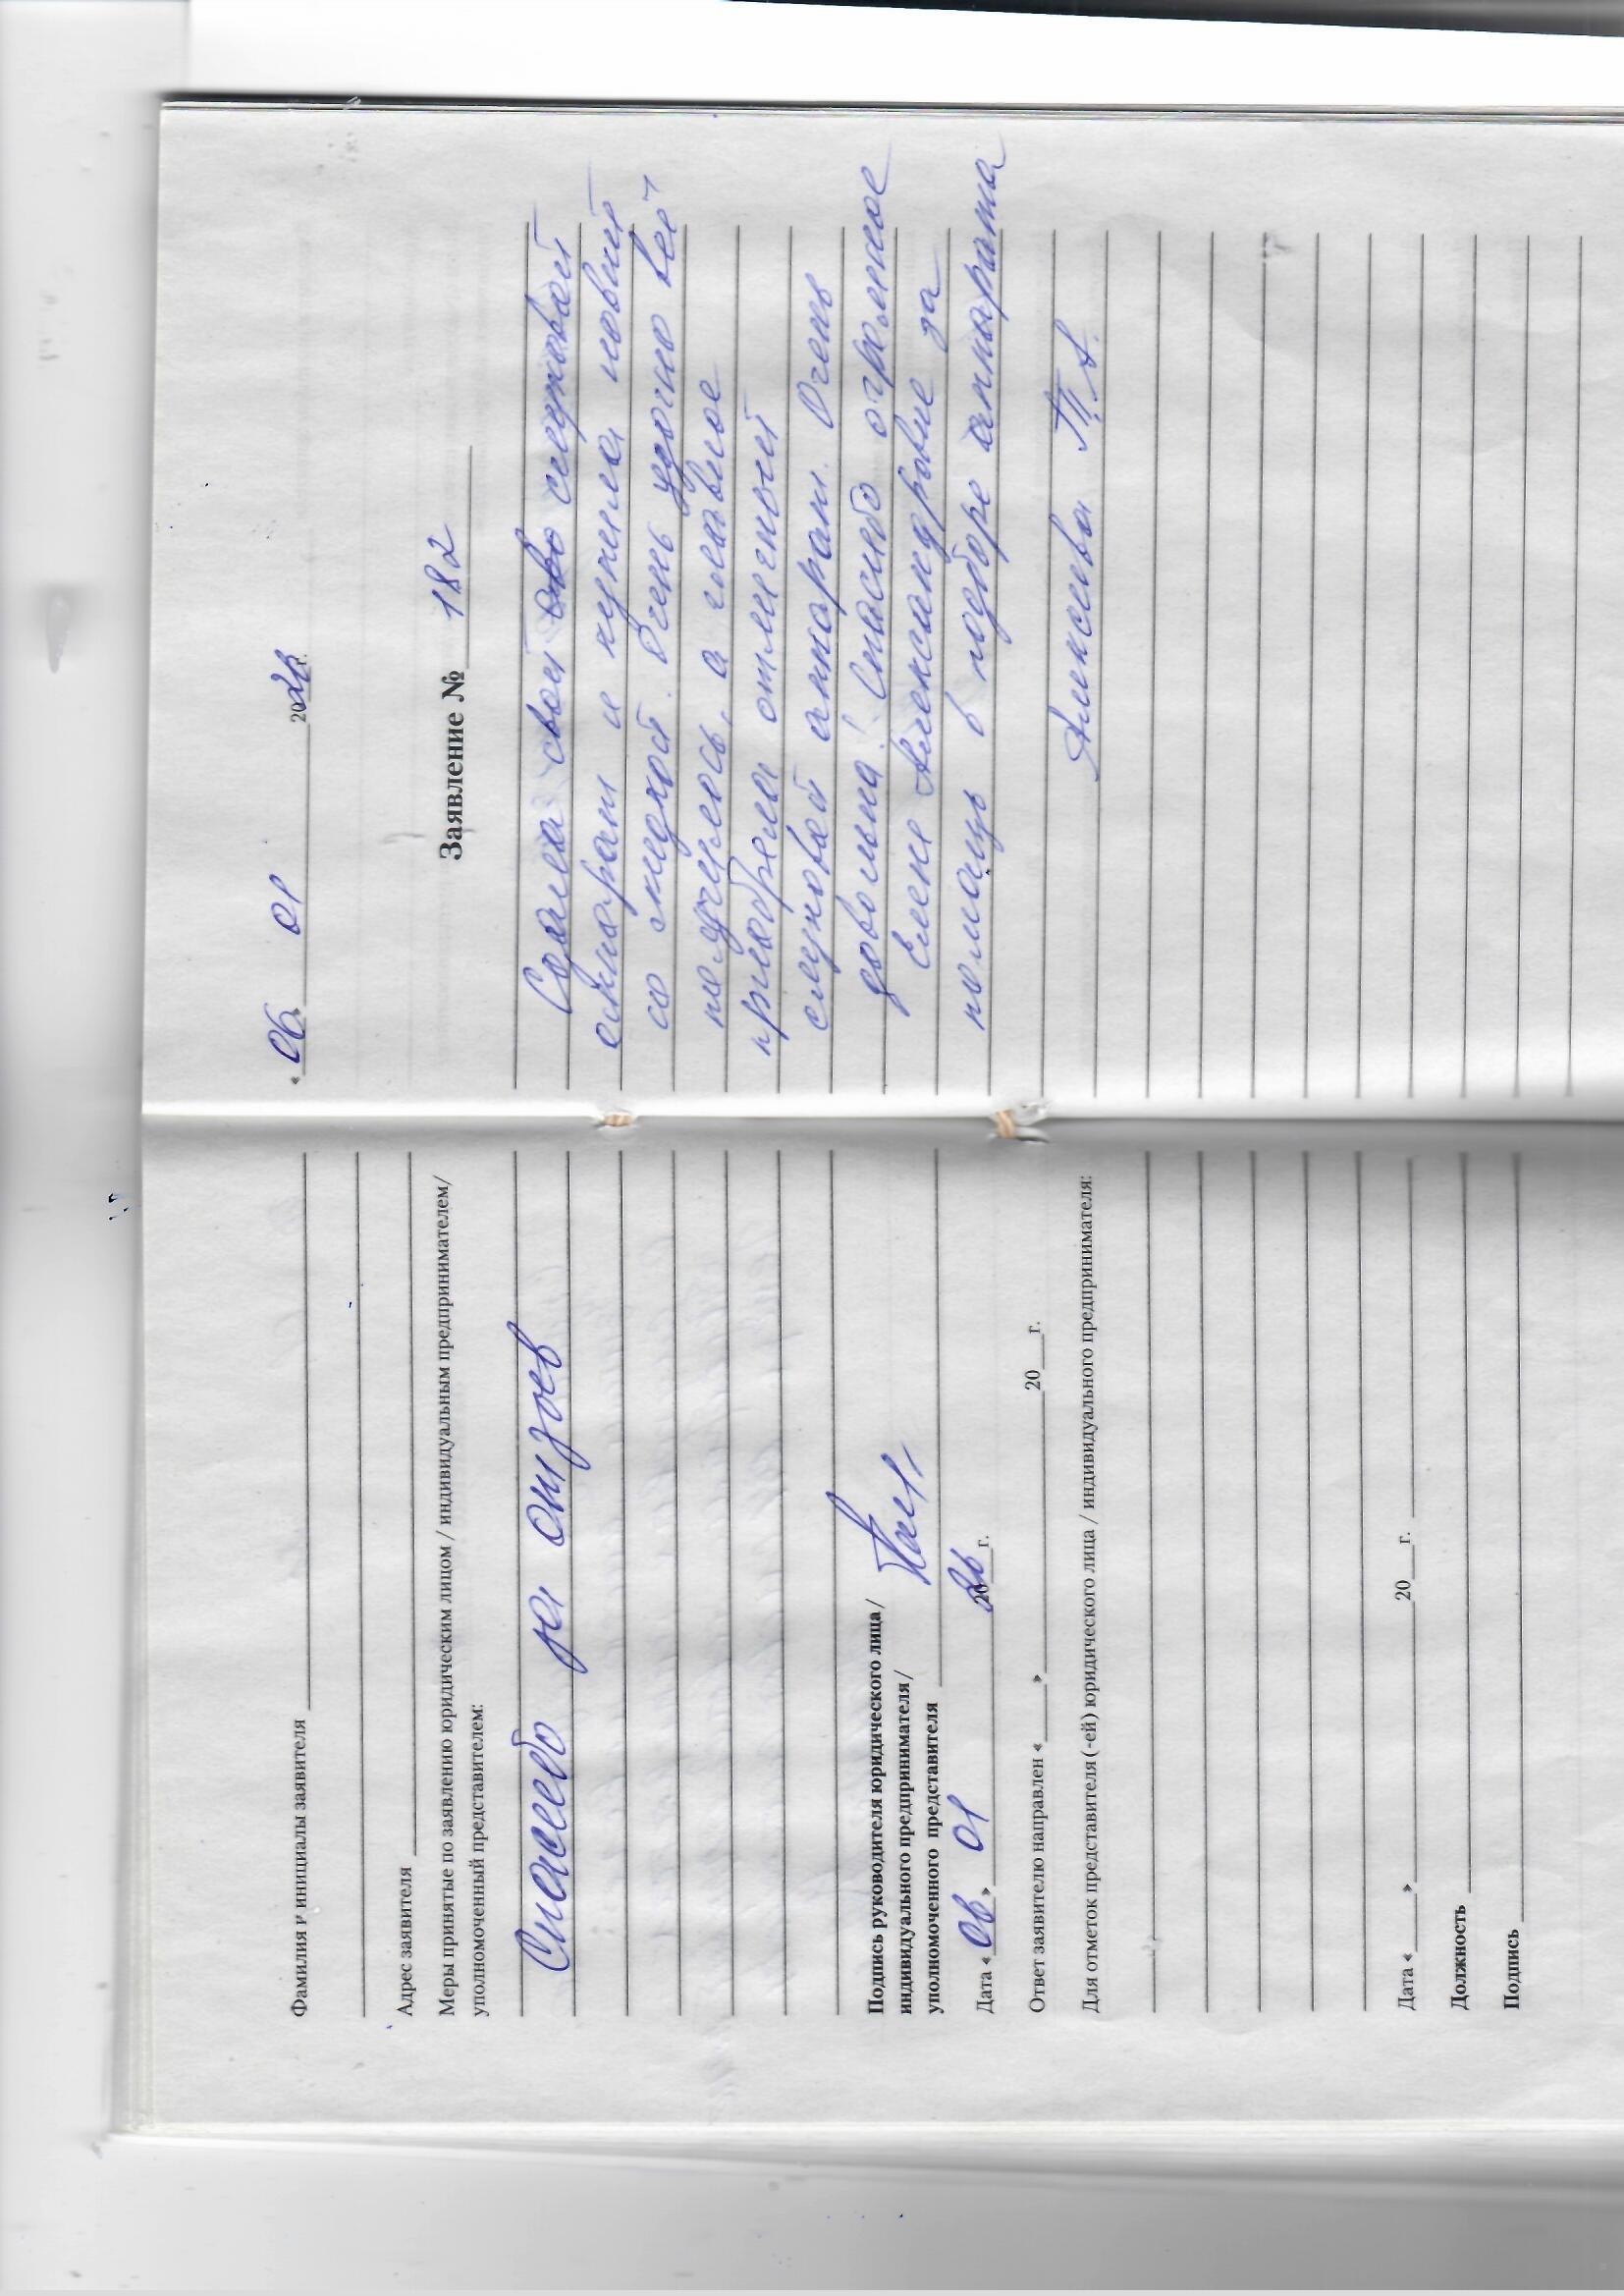 Фамилия и инициалы заявителя
Адрес заявителя
Меры принятые по заявлению юридическим лицом / индивидуальным предпринимателем/
уполномоченный представителем:
Спасибо за отзыв
Подпись руководителя юридического лица/
индивидуального предпринимателя/
уполномоченного представителя
Дата « 06 » 01 2026 г.
Ответ заявителю направлен « » 20 г.
Для отметок представителя (-ей) юридического лица / индивидуального предпринимателя:
Дата « » 20 г.
Должность
Подпись
« 06 01 2026 г.
Заявление № 182
Сдала свой слуховой
аппарат и купила новый
со скидкой. Очень удобно всё
получилось, а главное
приобрела отличный
слуховой аппарат. Очень
довольна! Спасибо огромное
Елене Александровне за
помощь в подборе аппарата
Алексеева Т.А.